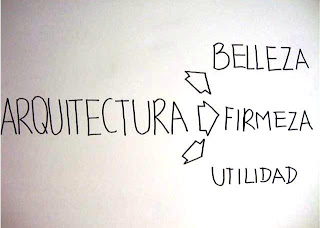 BELLEZA
ARQUITECTURA
FIRMEZA
UTILIDAD